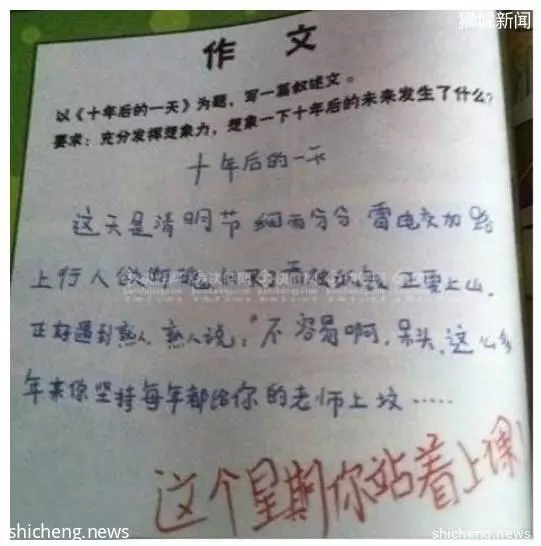 狮城新闻
作 文
以《十年后的一天》为题，写一篇叙述文。
要求：充分发挥想象力，想象一下十年后的未来发生了什么？
十年后的一天
这天是清明节 细雨分分 雷电交加 路
上行人 正要上山.
正好遇到熟人, 熟人说："不容易啊, 呆头, 这么多
年来你坚持每年都给你的老师上坟……
这个星期你站着上课!
shicheng.news
shicheng.news